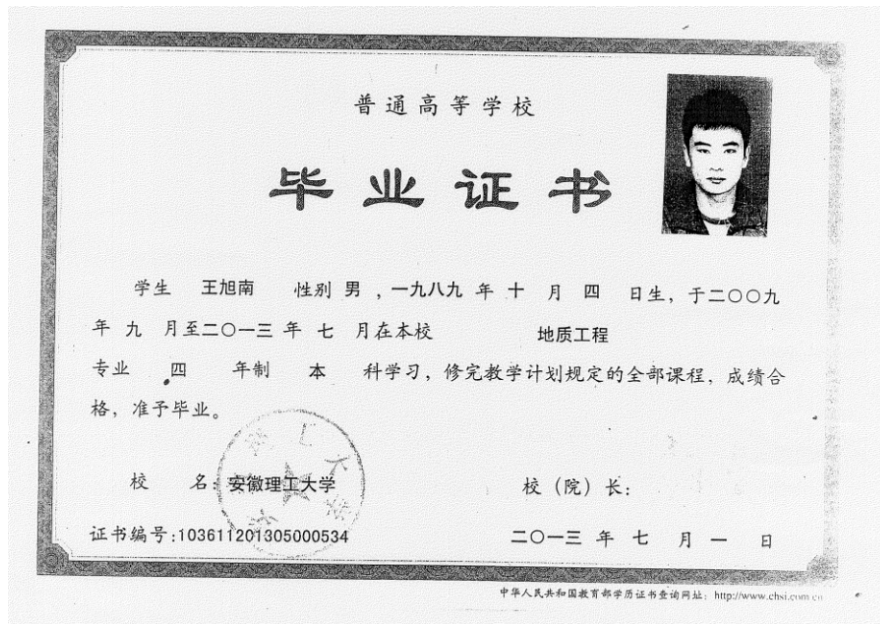 普通高等学校
毕业证书
学生 王旭南 性别 男 ，一九八九 年 十 月 四 日生，于二〇〇九
年 九 月至二〇一三 年 七 月在本校 地质工程
专业 四 年制 本 科学习，修完教学计划规定的全部课程，成绩合
格，准予毕业。
校 名：安徽理工大学 校（院）长：
证书编号:103611201305000534 二〇一三 年 七 月 一 日
中华人民共和国教育部学历证书查询网址：http://www.chsi.com.cn